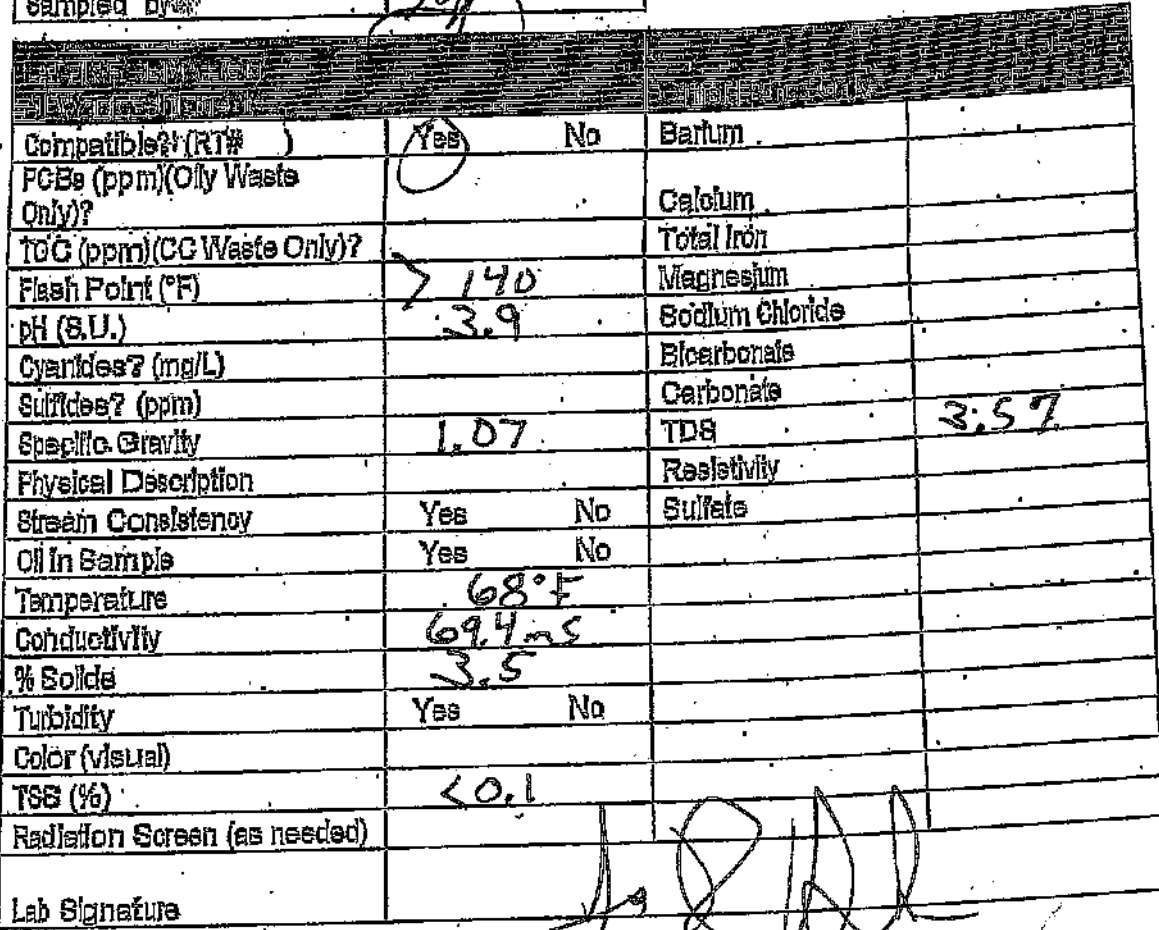 Sampled by
Compatible? (RT# ) Yes No Barium
PCBs (ppm)(Oily Waste Only)? Calcium
TOC (ppm)(CC Waste Only)? Total Iron
Flash Point (°F) > 140 Magnesium
pH (S.U.) 3.9 Sodium Chloride
Cyanides? (mg/L) Bicarbonate
Sulfides? (ppm) Carbonate
Specific Gravity 1.07 TDS 3.57
Physical Description Resistivity
Stream Consistency Yes No Sulfate
Oil in Sample Yes No
Temperature 68°F
Conductivity 69.4 mS
% Solids 3.5
Turbidity Yes No
Color (visual)
TSS (%) <0.1
Radiation Screen (as needed)
Lab Signature